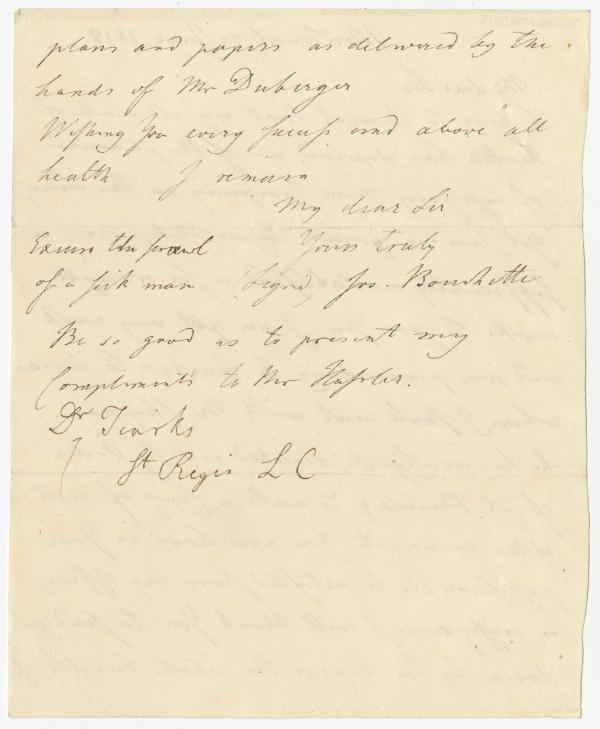 plans and papers as delivered by the
hands of Mr Duberger
Wishing you every success and above all
health I remain
My dear Sir
Excuse the scrawl Yours truly
of a sick man (Signd) Jos. Bouchette
Be so good as to present my
Compliments to Mr Hassler.
Dr Tiarks
St Regis L C